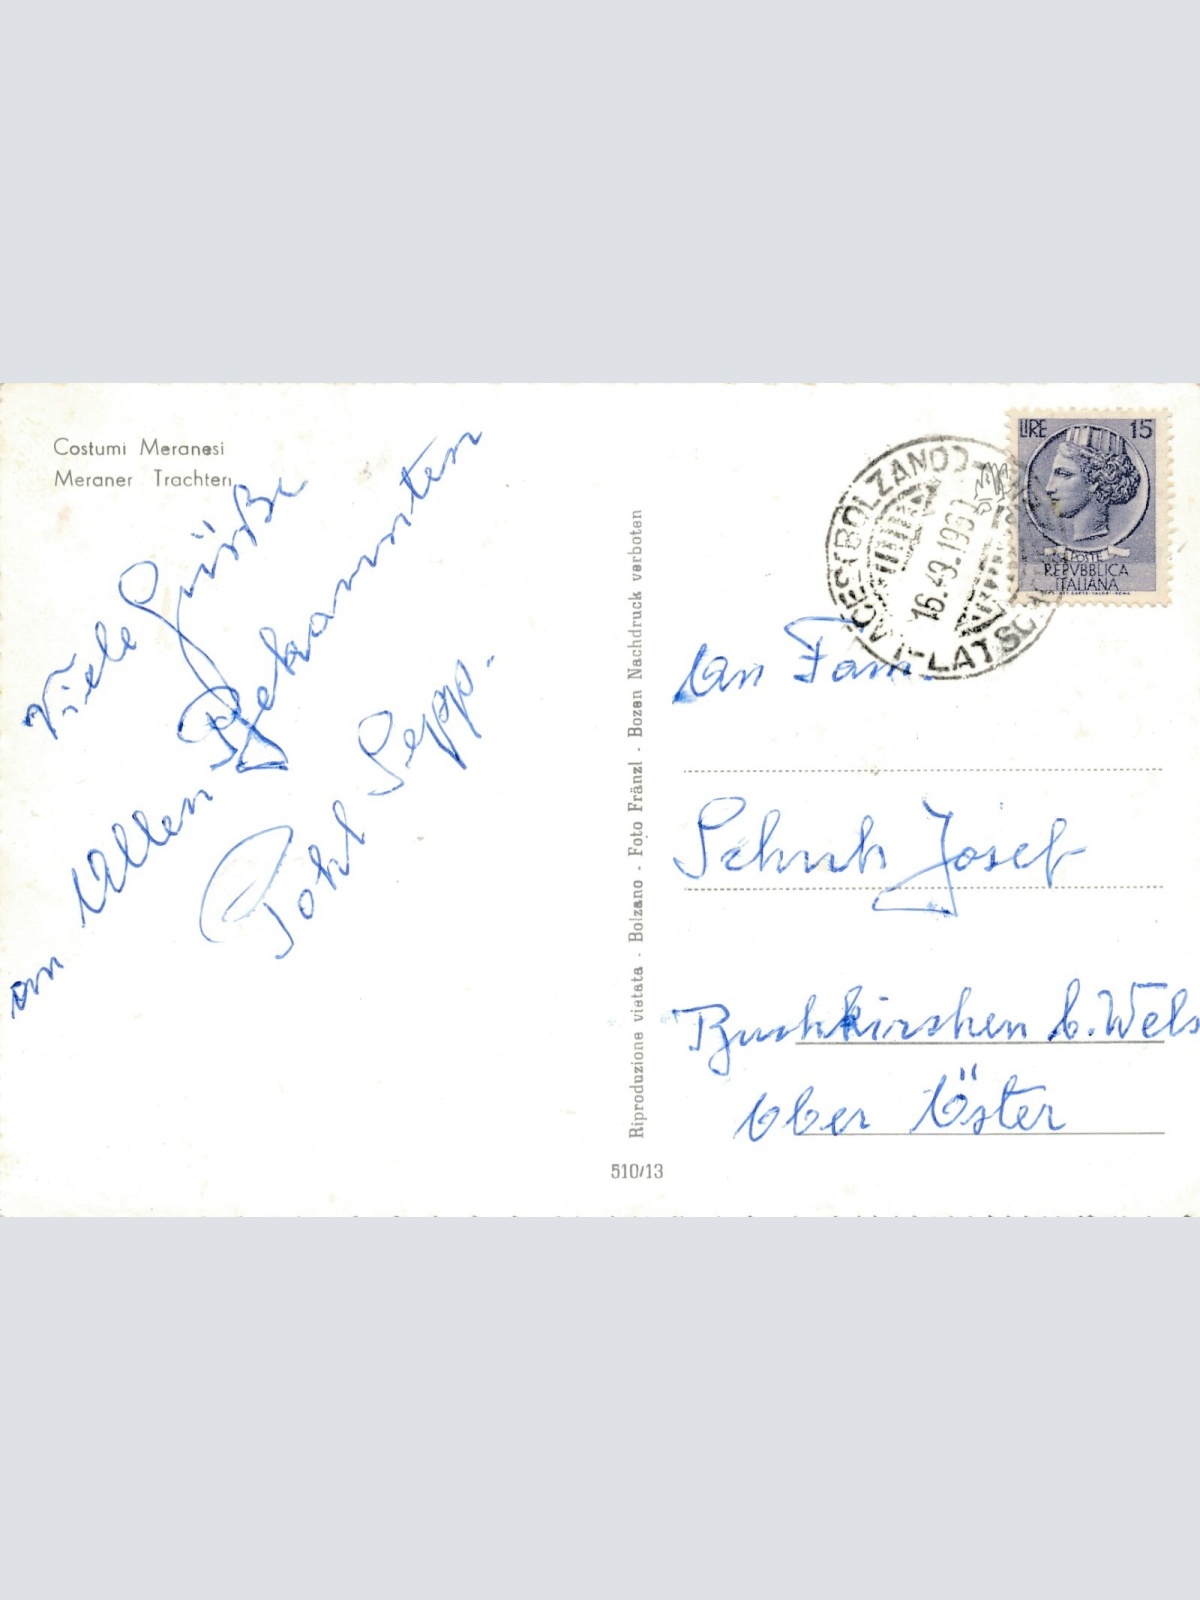 Costumi Meranesi
Meraner Trachten
Viele Grüße
an Allen Bekannten
Pohl Sepp.
Riproduzione vietata - Bolzano - Foto Fränzl - Bozen Nachdruck verboten
510/13
LIRE 15
POSTE
REPVBBLICA
ITALIANA
(BOLZANO)
LATSCH
An Fam.
Schuh Josef
Buchkirchen b. Wels
Ober Öster